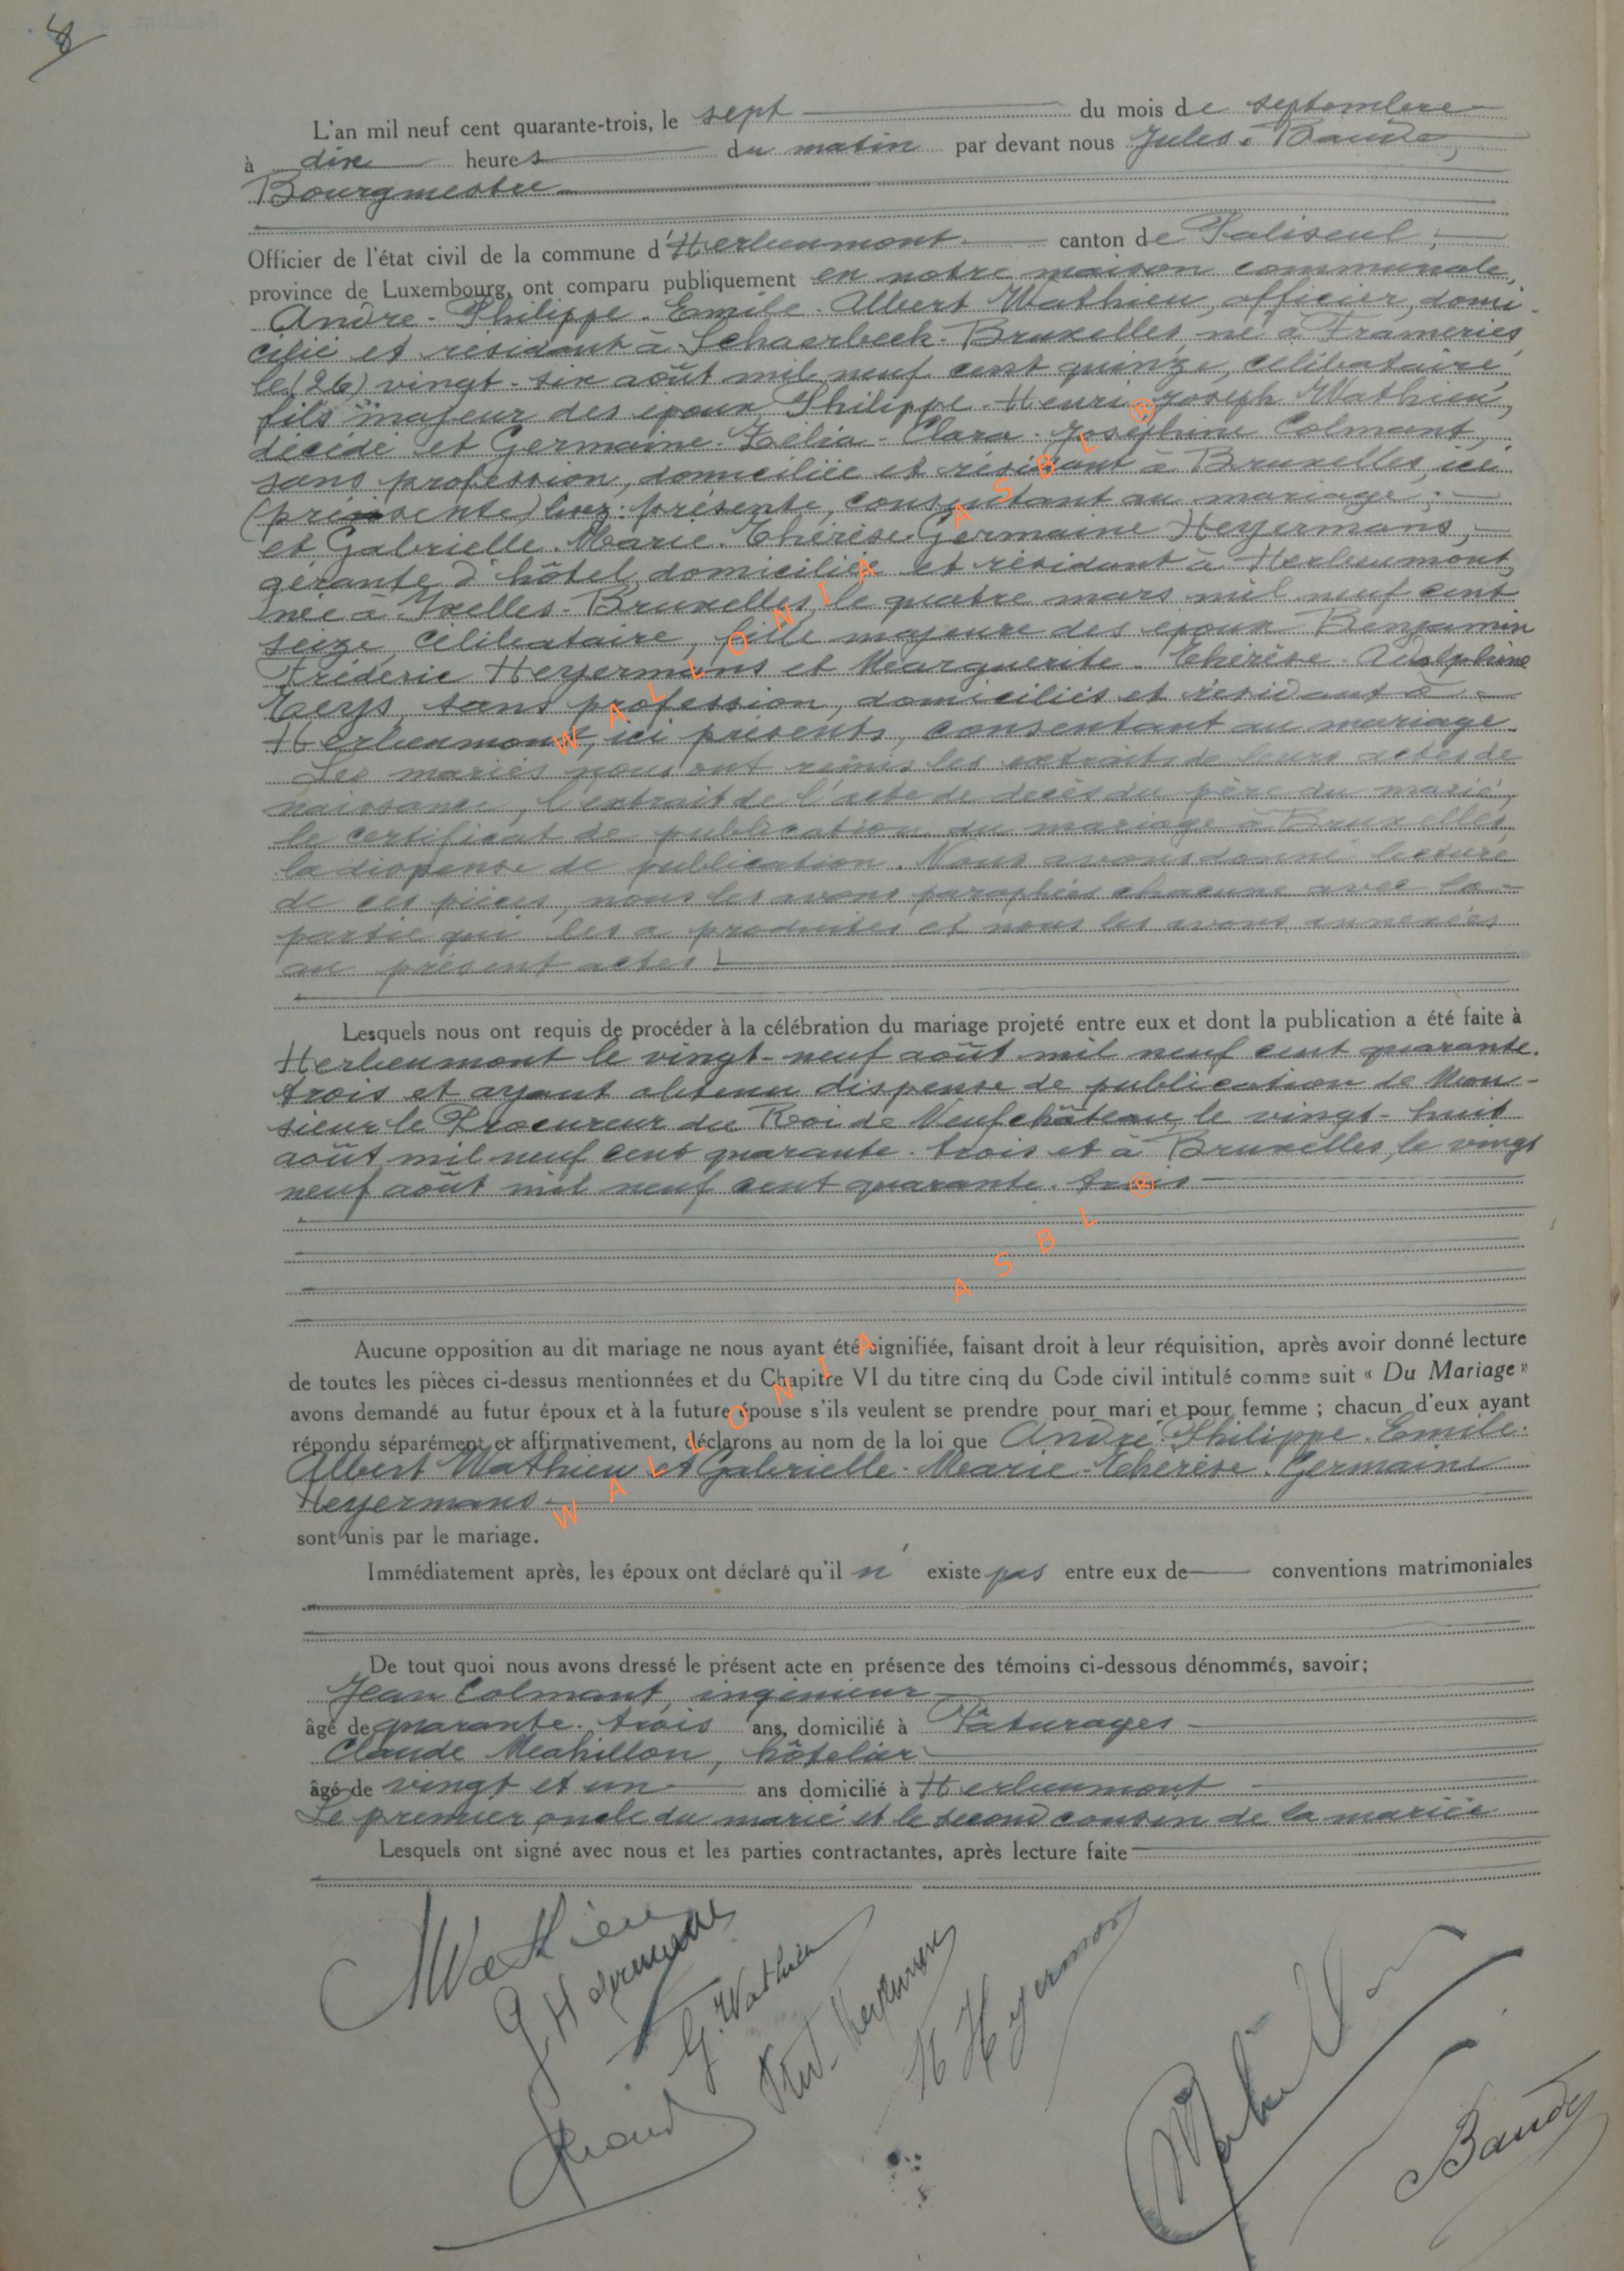 8
L'an mil neuf cent quarante-trois, le sept du mois de septembre
à dix heures du matin par devant nous Jules Baudy,
Bourgmestre
Officier de l'état civil de la commune d'Herbeumont canton de Paliseul,
province de Luxembourg, ont comparu publiquement en notre maison communale,
André-Philippe-Emile-Albert Wathieu, officier, domi-
cilié et résidant à Schaerbeek-Bruxelles, né à Frameries,
le (26) vingt-six août mil neuf cent quinze, célibataire,
fils majeur des époux Philippe-Henri-Joseph Wathieu,
décédé et Germaine-Zélia-Clara-Joséphine Colmant,
sans profession, domiciliée et résidant à Bruxelles, ici
présente, consentant au mariage;
et Gabrielle-Marie-Thérèse-Germaine Heyermans,
gérante d'hôtel, domiciliée et résidant à Herbeumont,
née à Ixelles-Bruxelles, le quatre mars mil neuf cent
seize, célibataire, fille majeure des époux Benjamin
Frédéric Heyermans et Marguerite-Thérèse-Adolphine
sans profession, domiciliés et résidant à
Herbeumont, ici présents, consentant au mariage.
Les mariés nous ont remis les extraits de leurs actes de
naissance, l'extrait de l'acte de décès du père du marié,
le certificat de publication du mariage à Bruxelles,
la dispense de publication. Nous avons donné lecture
de ces pièces, nous les avons paraphées chacune avec la
partie qui les a produites et nous les avons annexées
au présent actes.
Lesquels nous ont requis de procéder à la célébration du mariage projeté entre eux et dont la publication a été faite à
Herbeumont le vingt-neuf août mil neuf cent quarante-
trois et ayant obtenu dispense de publication de Mon-
sieur le Procureur du Roi de Neufchâteau, le vingt-huit
août mil neuf cent quarante-trois et à Bruxelles, le vingt
neuf août mil neuf cent quarante-trois
Aucune opposition au dit mariage ne nous ayant été signifiée, faisant droit à leur réquisition, après avoir donné lecture
de toutes les pièces ci-dessus mentionnées et du Chapitre VI du titre cinq du Code civil intitulé comme suit « Du Mariage »
avons demandé au futur époux et à la future épouse s'ils veulent se prendre pour mari et pour femme ; chacun d'eux ayant
répondu séparément et affirmativement, déclarons au nom de la loi que André-Philippe-Emile-
Albert Wathieu et Gabrielle-Marie-Thérèse-Germaine
Heyermans
sont unis par le mariage.
Immédiatement après, les époux ont déclaré qu'il n'existe pas entre eux de conventions matrimoniales
De tout quoi nous avons dressé le présent acte en présence des témoins ci-dessous dénommés, savoir;
Jean Colmant, ingénieur
âgé de quarante-trois ans, domicilié à Pâturages
Claude Mahillon, hôtelier
âgé de vingt et un ans domicilié à Herbeumont
Le premier oncle du marié et le second cousin de la mariée
Lesquels ont signé avec nous et les parties contractantes, après lecture faite
AWathieu
G Heyermans
G. Wathieu
Fréd. Heyermans
M Heyermans
Mahillon
Baudy
WALLONIA ASBL ®
WALLONIA ASBL ®